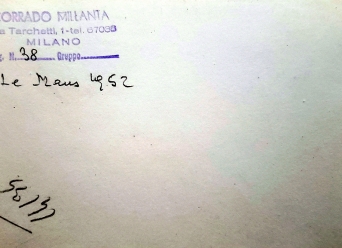 CORRADO MILLANTA
a Tarchetti, 1-tel. 67038
MILANO
N. 38 Gruppo
Le Mans 1952